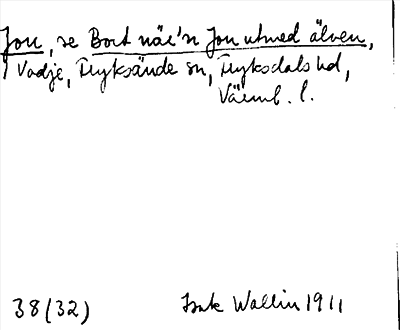 Jou, se Bort näi'n Jou utmed älven,
i Vadje, Fryksände sn, Fryksdals hd,
Värml. l.
38 (32) Isak Wallin 1911